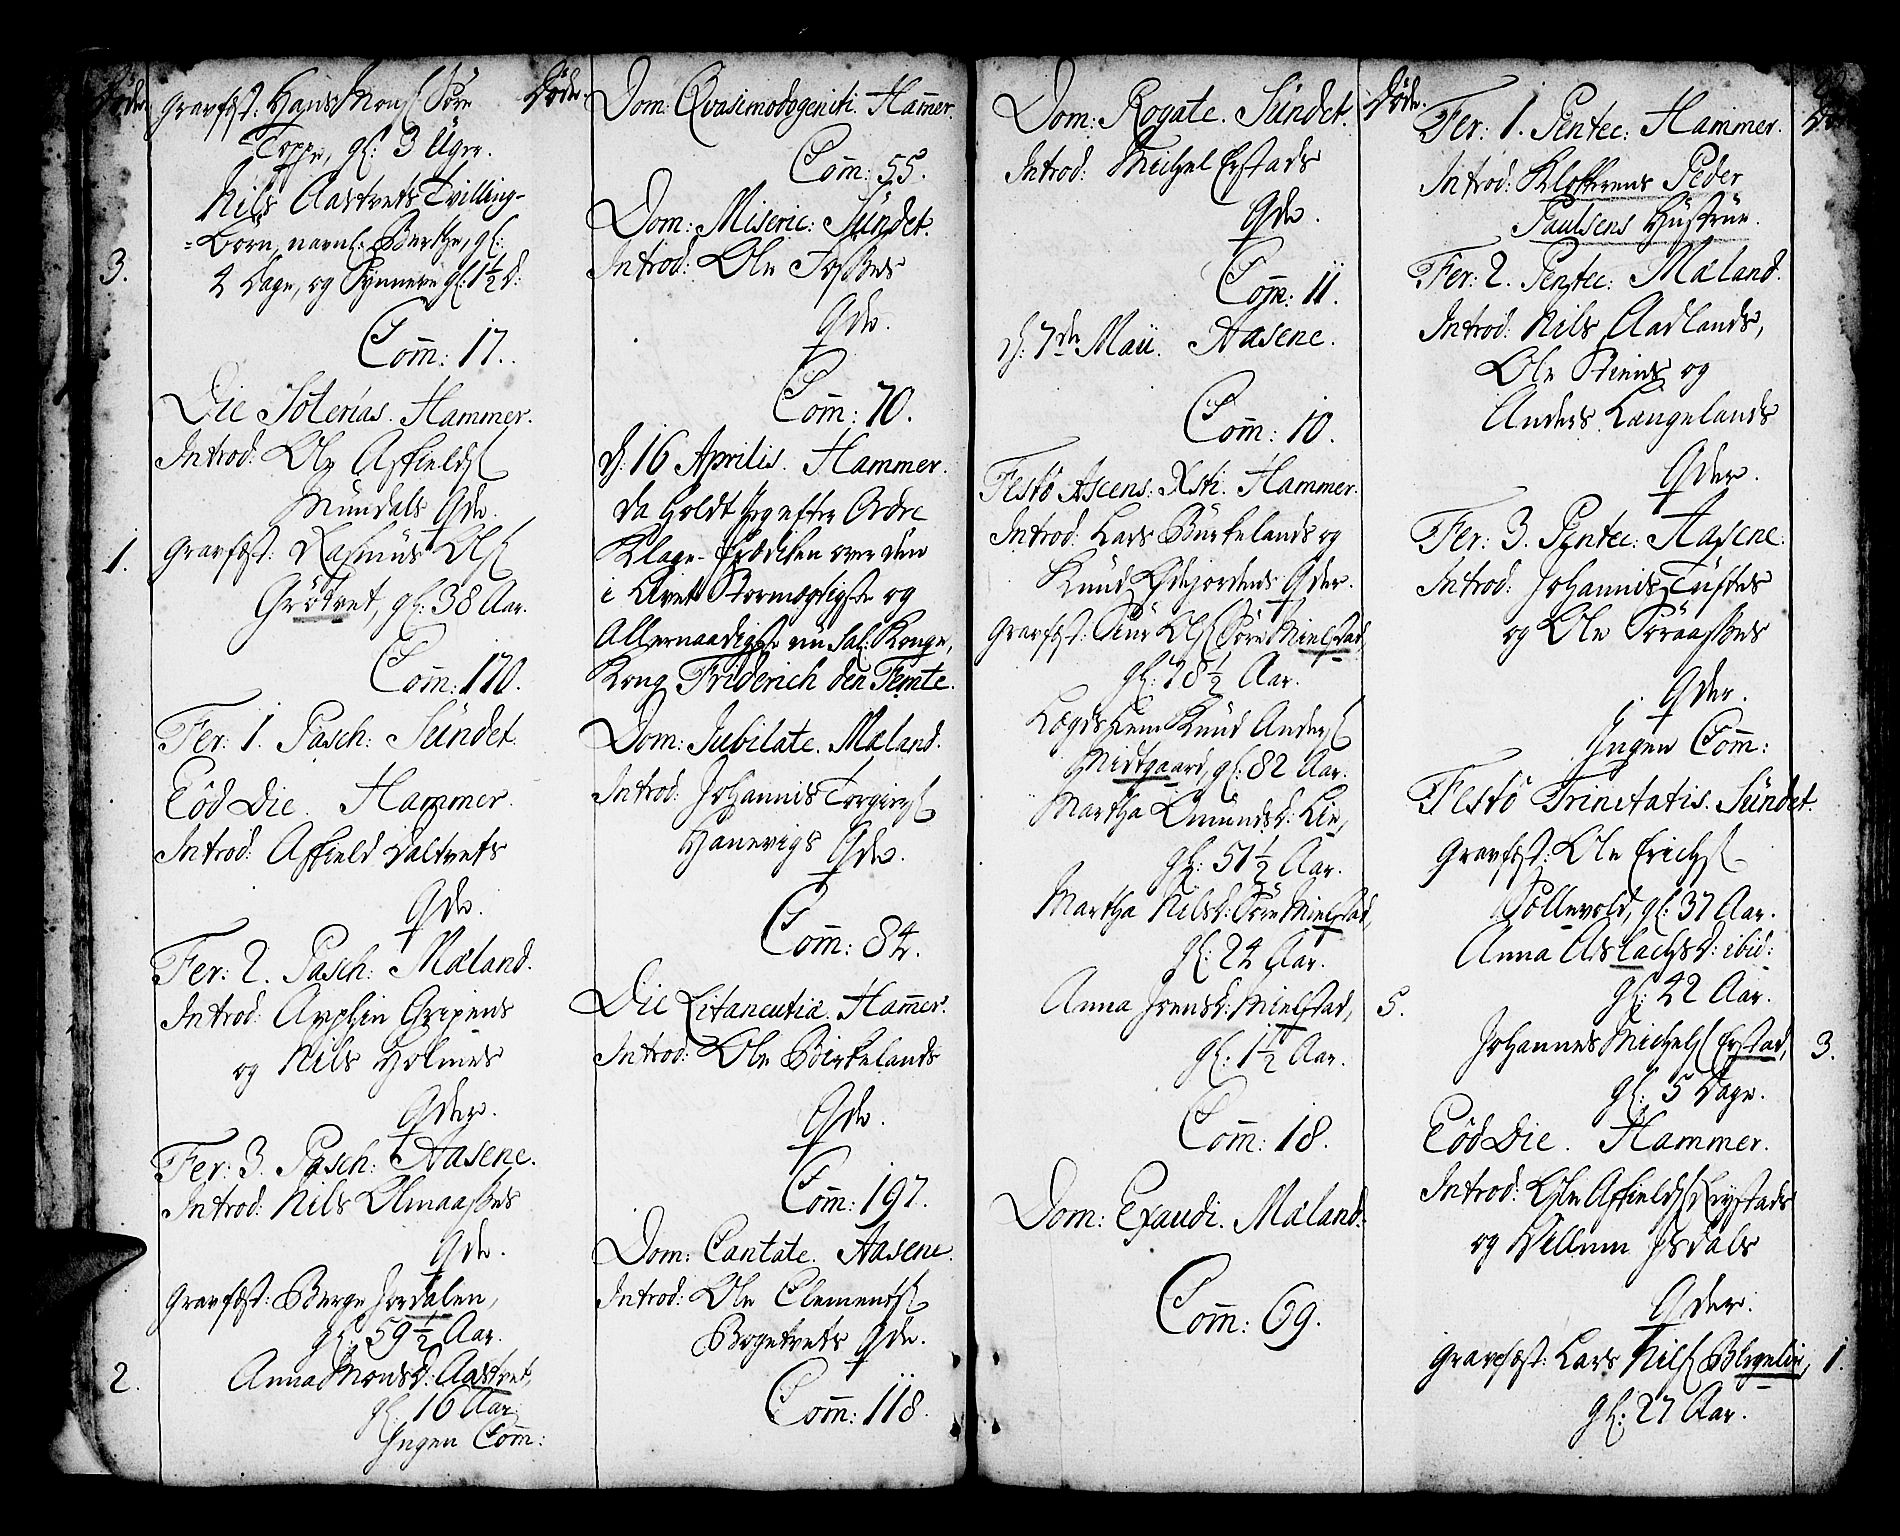 Døde.
Gravfæst: Hans Mons[ Søre
Toppe, gl: 3 Uger.
Nils Aastvets Tvilling-
=börn, navnl: Berthe, gl:
3.
2 Dage, og Synneve gl: 1½ D:
Com̄: 17.
Die Soterias. Hammer.
Introd: Ole Asfields[
Mundals Qde.
1.
Gravfæst: Rasmus Ols[
Grötvet, gl: 38 Aar.
Com̄: 170.
Fer: 1. Pasch: Sündet.
Eöd Die. Hammer.
Introd: Asfield Daltvets
Qde.
Fer: 2. Pasch: Mæland.
Introd: Gripens
og Nils Holmes
Qder.
Fer: 3. Pasch: Aasene.
Introd: Nils Olmaaskes
Qde.
Gravfæst: Berge Jordalen,
gl: 59½ Aar.
2.
Anna Monsd: Aastvet,
gl: 16 Aar.
Ingen Com̄:
Døde.
Dom: Qvasimodogeniti. Ham̄er.
Com̄: 55.
Dom: Miseric: Sündet.
Introd: Ole Toskes
Qde.
Com̄: 70.
d: 16 Aprilis. Hammer.
da holdt Jeg efter Ordre
Klage-Prædiken over den
i Livet Stormægtigste og
Allernaadigste nu Sal: Konge,
Kong Friderich den Femte.
Dom: Jubilate. Mæland.
Introd: Johannis Torgers[
Hanevigs Qde.
Com̄: 84.
Die Litaneutiæ. Ham̄er.
Introd: Ole Birkelands
Qde.
Com̄: 197.
Dom: Cantate. Aasene.
Introd: Ole Clements[
Bogetvets Qde.
Com̄: 118.
Dom: Rogate. Sündet.
Introd: Michel Erstads
Qde.
Com̄: 11.
d: 7de Maii. Aasene.
Com̄: 10.
Festo Ascens: Xsti. Hammer.
Introd: Lars Bürkelands og
Knud Eidsjordens Qder.
Gravfæst: Siur Ols[ Söre Mielstad,
gl: 78½ Aar.
Lægdslem Knud Anders[
Midtgaard, gl: 82 Aar.
Martha Omundsd: Lie,
gl: 51½ Aar.
Martha Nilsd: Söre Mielstad,
gl: 24 Aar.
Anna Jvensd: Mielstad,
5.
gl: 1½ Aar.
Com̄: 18.
Dom: Exaudi. Mæland.
Com̄: 69.
Døde.
Fer: 1. Pentec: Hammer.
Introd: Klokkerens Peder
Paulsens Hüstrüe.
Fer: 2. Pentec: Mæland.
Introd: Nils Aadlands,
Ole Steens og
Anders Langelands
Qder.
Fer: 3. Pentec: Aasene.
Introd: Johannis Tuftes
og Ole Söraaskes
Qder.
Ingen Com̄:
Festo Trinitatis. Sündet.
Gravfæst: Ole Erichs[
Söllevold, gl: 37 Aar.
Anna Aslachsd: ibid:
gl: 42 Aar.
Johannes Michels[ Erstad,
3.
gl: 5 Dage.
Eöd Die. Hammer.
Introd: Ole Asfields[ Rystads
og Vellum Jsdals
Qder.
Gravfæst: Lars Nils[ Blegelie,
1.
gl: 27 Aar.